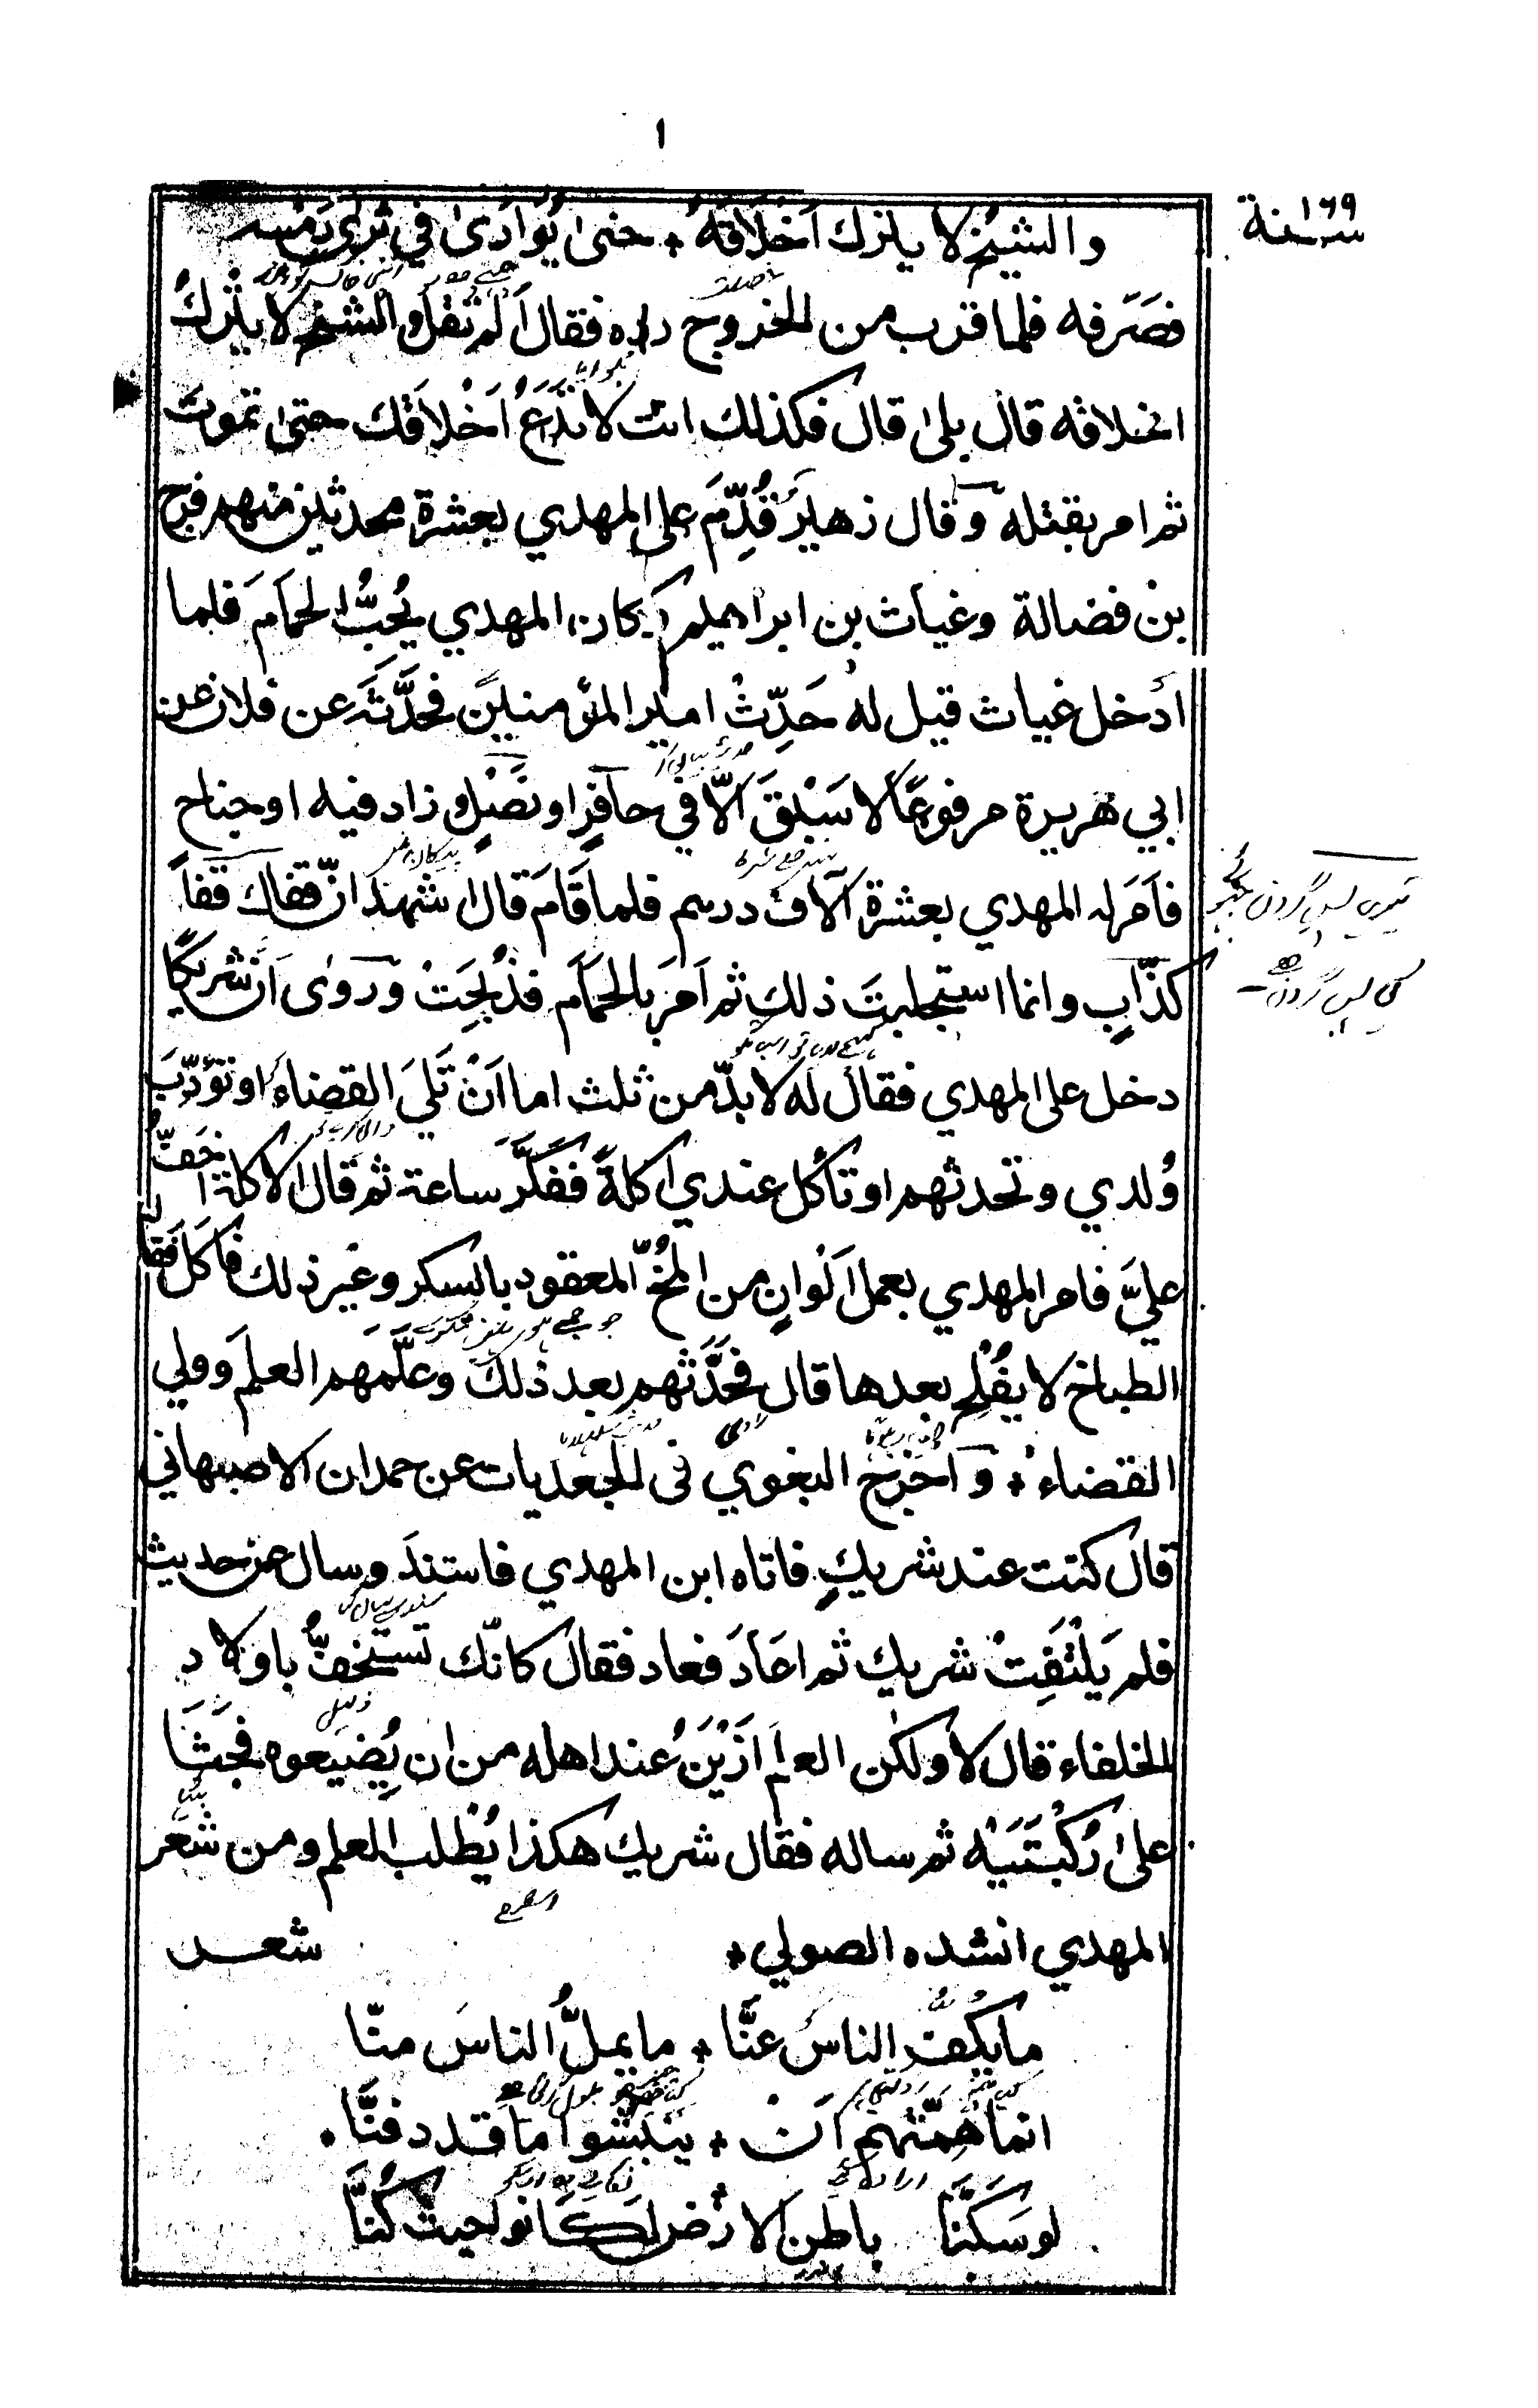 ١
سنة ١٦٩
والشيخ لا يترك اَخْلَاقَهُ * حتىٰ يُوَارَىٰ في ثرىٰ رَمْسِهٖ
فصَرَّفه فلما قرب من الخروج ردّه فقال اَلَم تقل والشيخ لا يَتْرُكُ
اخلاقه قال بلىٰ قال فكذلك انت لا تَدَعُ اَخْلاقَك حتىٰ تموت
ثم امر بقتله وقال زهير قُدِّمَ على المهدي بعشرة محدثين منهم فرج
بن فضالة وغياث بن ابراهيم وكان المهدي يُحِبُّ الحمَام فلما
اُدخل غياث قيل له حَدِّثْ امير المؤمنين فحَدَّثَه عن فلان عن
ابي هريرة مرفوعًا لا سَبْقَ اِلّا في حافرٍ او نَصْلٍ وزاد فيه او جناح
فاَمَرَ له المهدي بعشرة آلاف درهم فلما قَامَ قال اشهد انّ قفاك قفَا
كذّابٍ وانما استجلبتَ ذلك ثم اَمَرَ بالحمَام فذُبِحَتْ وروىٰ اَنّ شريكًا
دخل على المهدي فقال له لا بدّ من ثلث اما اَنْ تَلِيَ القضاءَ او تؤدّبَ
وُلدي وتحدثهم او تأكل عندي اكلةً ففَكَّرَ ساعة ثم قال الاكلة اخَفُّ
عليَّ فامر المهدي بعمل اَلْوانٍ من المُخّ المعقود بالسكر وغير ذلك فاَكَلَ فقال
الطباخ لا يُفْلِح بعدها قال فحَدَّثهم بعد ذلك وعَلَّمَهم العلم وولي
القضاء * واَخرَج البغوي في الجعديات عن حمدان الاصبهاني
قال كنت عند شريكٍ فاتاه ابن المهدي فاستندَ وسال عن حديث
فلم يَلْتَفِتْ شريك ثم اعَادَ فعاد فقال كانّك تستخفُّ باولاد
الخلفاء قال لا ولكن العلم اَزْيَنُ عند اهله من ان يُضيّعوه فجَثَا
علىٰ رُكْبَتَيْه ثم ساله فقال شريك هكذا يُطْلب العلم ومن شعر
المهدي انشده الصولي * شعر
ما يكفُّ الناسُ عنَّا * ما يملُّ الناسُ منّا
انما هِمّتهم اَنْ * ينبشوا ما قد دفنَّا
لو سَكَنَّا باطن الارض لكانوا حيث كُنّا